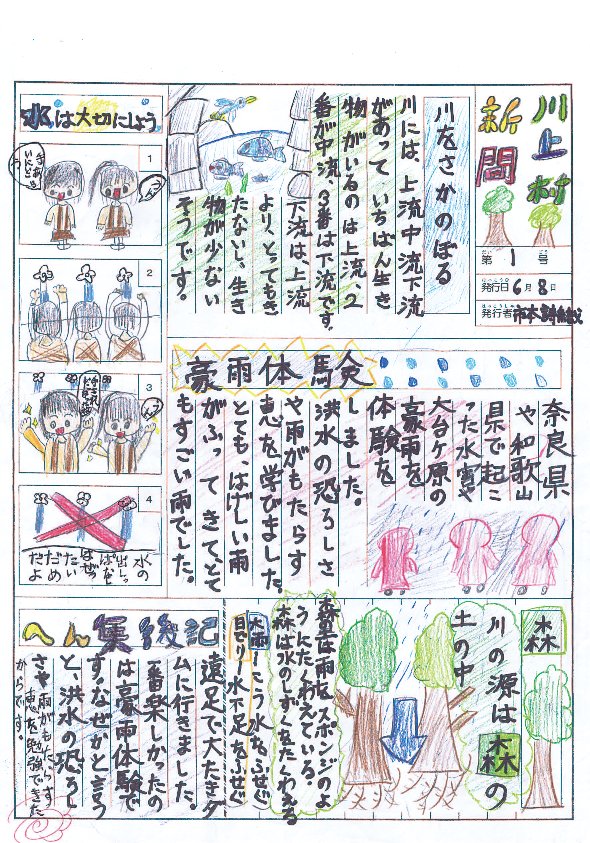 川上村
新聞
第1号
発行日 6月8日
発行者
川をさかのぼる
川には、上流中流下流
があって いちばん生き
物がいるのは上流、2
番が中流、3番は下流です。
下流は、上流
より、とってもき
たないし、生き
物が少ない
そうです。
水は大切にしよう
1
手あらいにいこう
2
3
4
水の
出しっ
ぱなし
はぜっ
たい
だめ
だよ
豪雨体験
奈良県
や和歌山
県で起こ
った水害や
大台ケ原の
豪雨を
体験を
しました。
洪水の恐ろしさ
や雨がもたらす
恵を学びました。
とても、はげしい雨
がふってきてとて
もすごい雨でした。
森
川の源は森の
土の中
森は雨をスポンジのよ
うにたくわえている。
森は水のしずくをたくわえる
大雨→こう水をふせぐ
日でり→水不足をふせぐ
へん集後記
遠足で大たきダ
ムに行きました。
一番楽しかったの
は豪雨体験で
す。なぜかと言う
と、洪水の恐ろし
さや雨がもたらす
恵を勉強できた
からです。